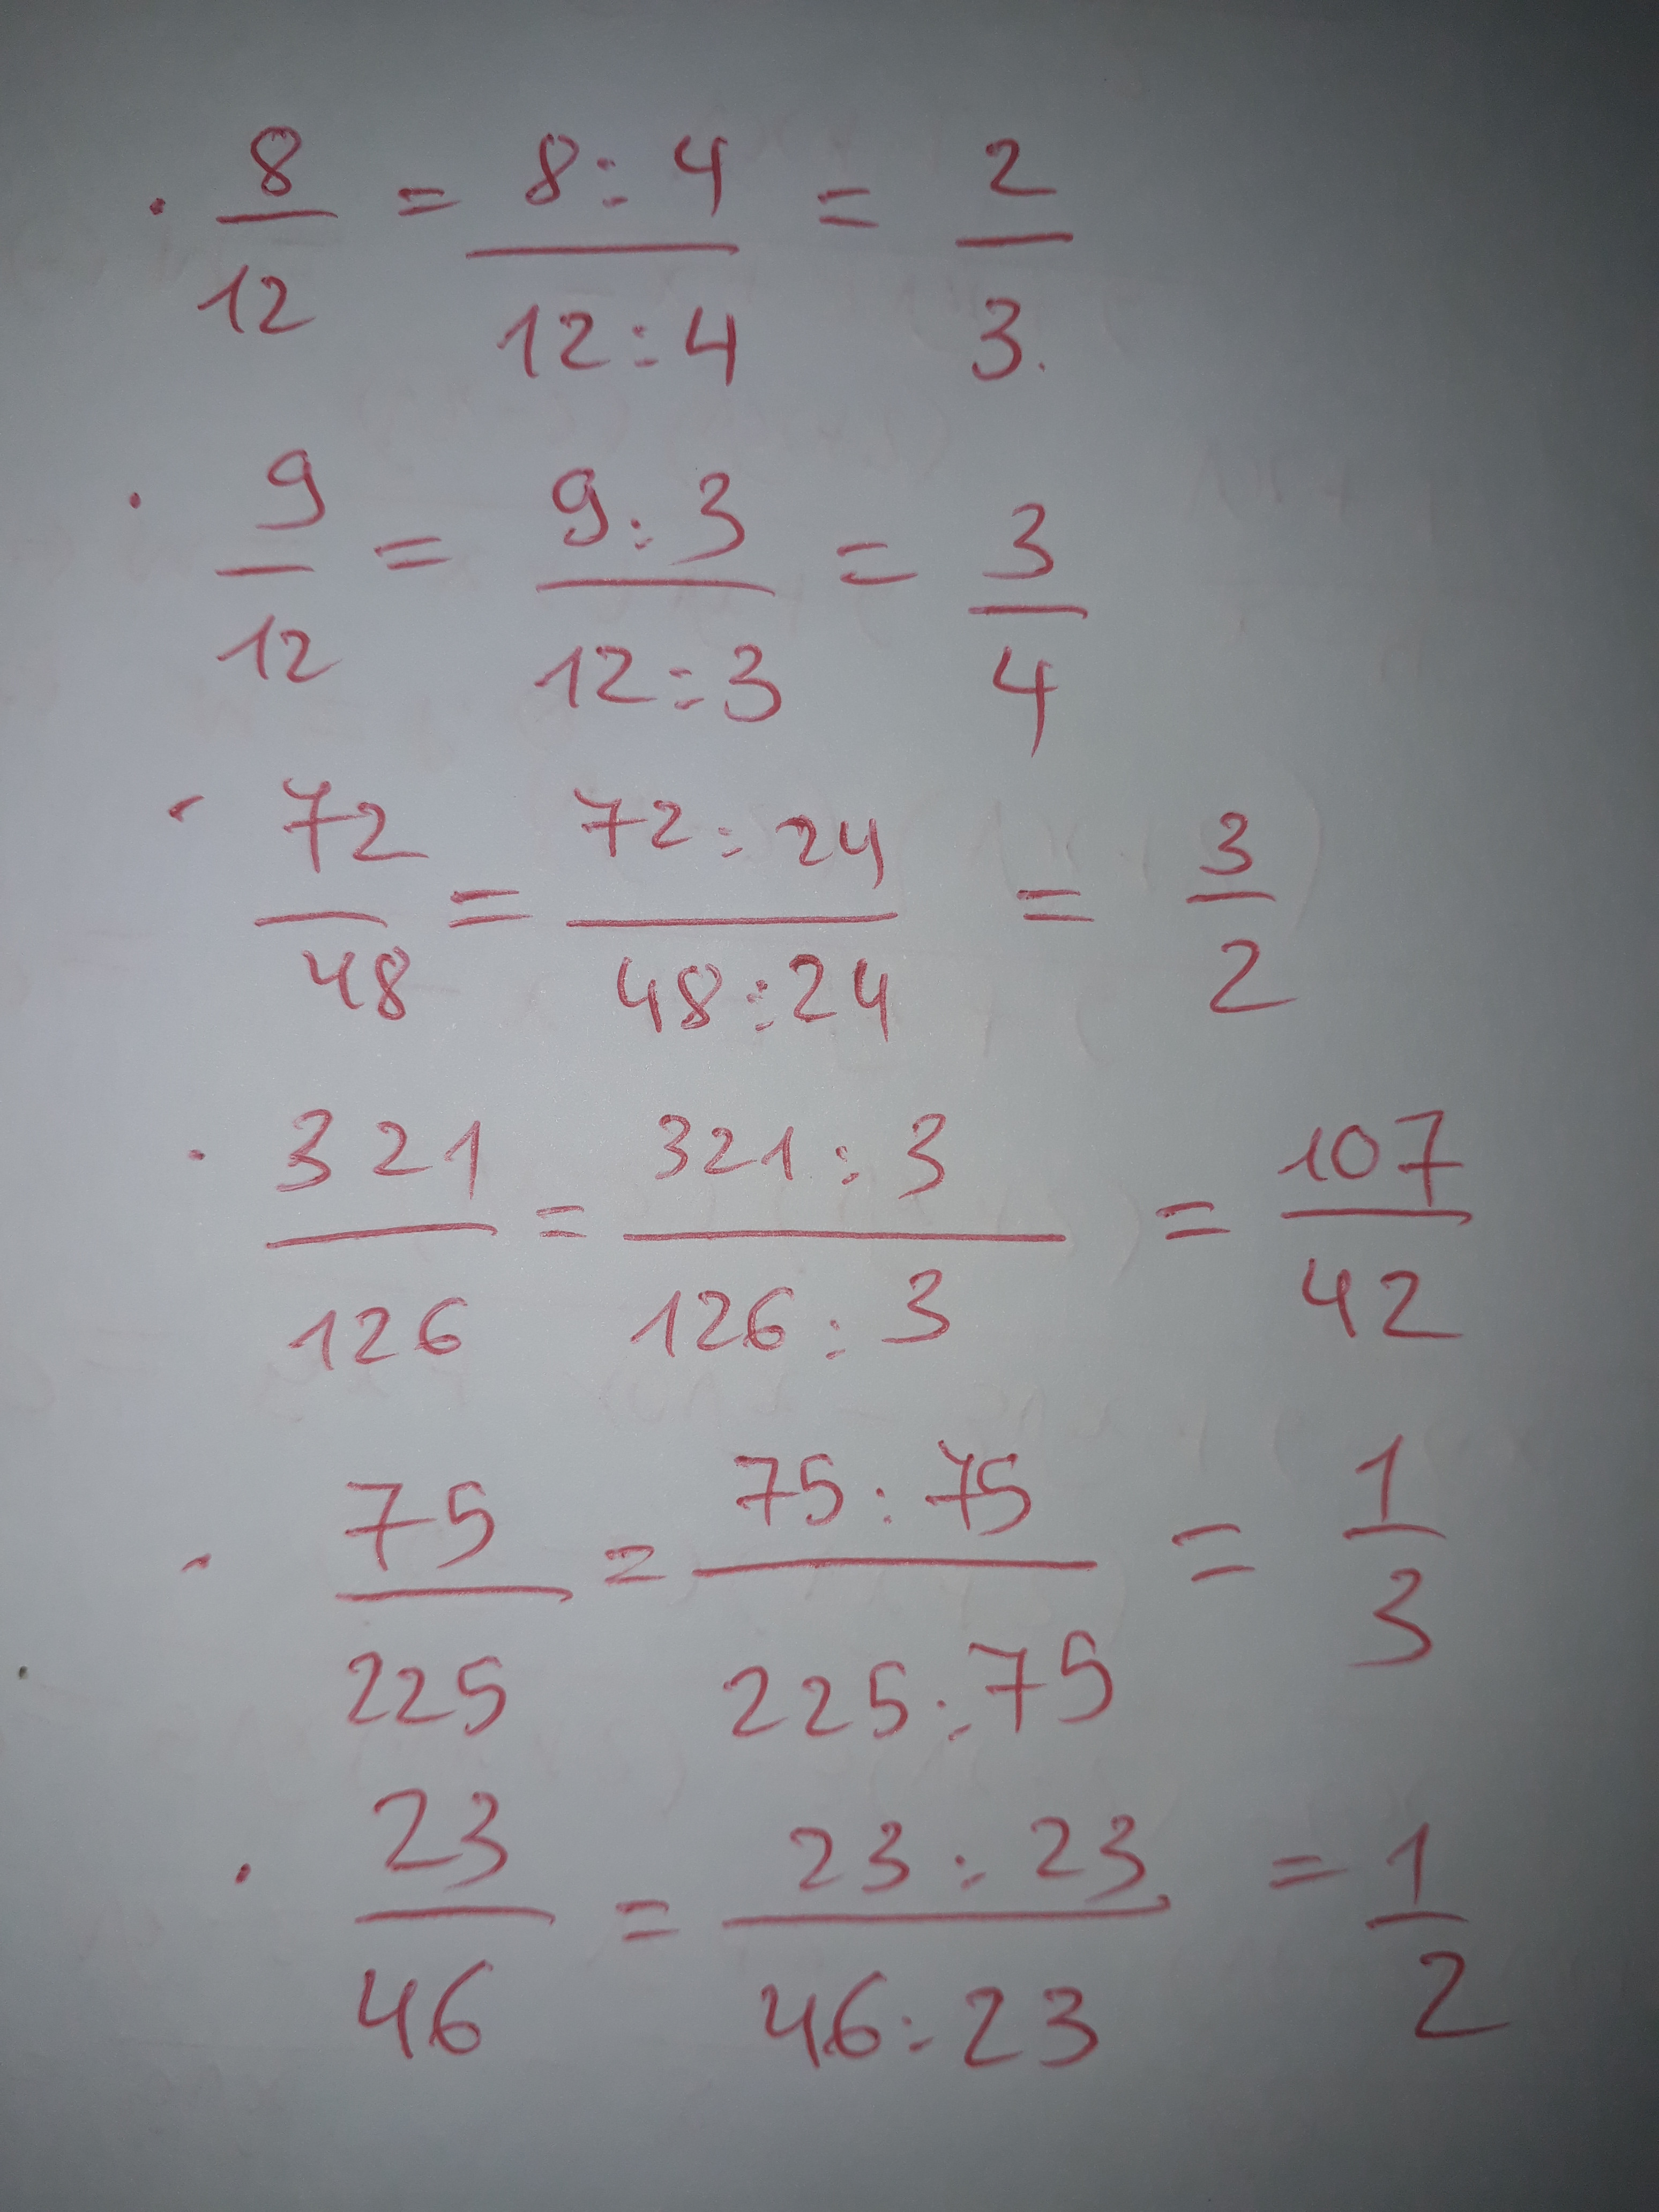 · 8/12 = 8:4/12:4 = 2/3.
· 9/12 = 9:3/12:3 = 3/4
· 72/48 = 72:24/48:24 = 3/2
· 321/126 = 321:3/126:3 = 107/42
· 75/225 = 75:75/225:75 = 1/3
· 23/46 = 23:23/46:23 = 1/2